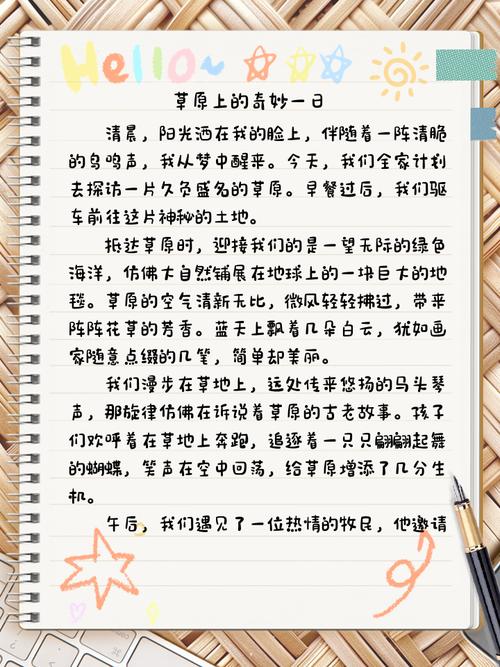 Hello~
草原上的奇妙一日
清晨，阳光洒在我的脸上，伴随着一阵清脆
的鸟鸣声，我从梦中醒来。今天，我们全家计划
去探访一片久负盛名的草原。早餐过后，我们驱
车前往这片神秘的土地。
抵达草原时，迎接我们的是一望无际的绿色
海洋，仿佛大自然铺展在地球上的一块巨大的地
毯。草原的空气清新无比，微风轻轻拂过，带来
阵阵花草的芳香。蓝天上飘着几朵白云，犹如画
家随意点缀的几笔，简单却美丽。
我们漫步在草地上，远处传来悠扬的马头琴
声，那旋律仿佛在诉说着草原的古老故事。孩子
们欢呼着在草地上奔跑，追逐着一只只翩翩起舞
的蝴蝶，笑声在空中回荡，给草原增添了几分生
机。
午后，我们遇见了一位热情的牧民，他邀请